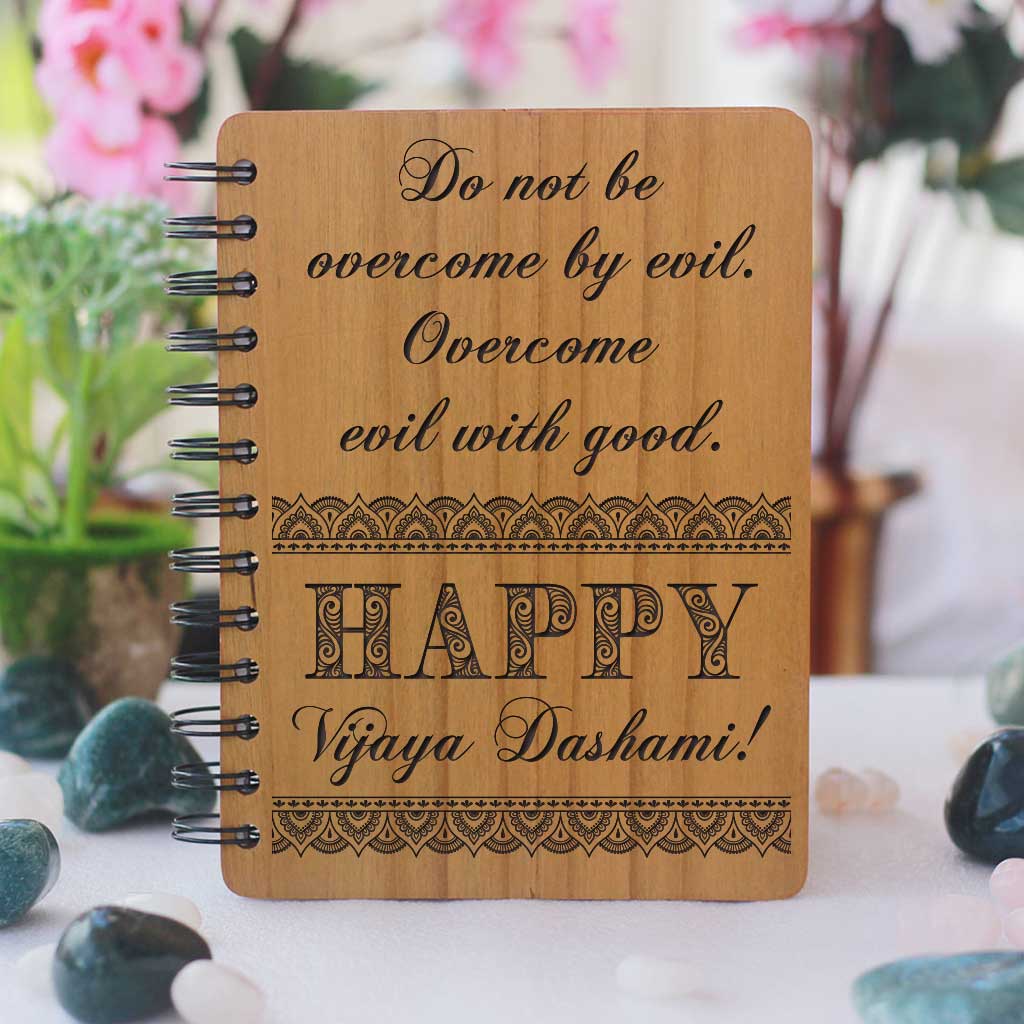 Do not be
overcome by evil.
Overcome
evil with good.
HAPPY
Vijaya Dashami!